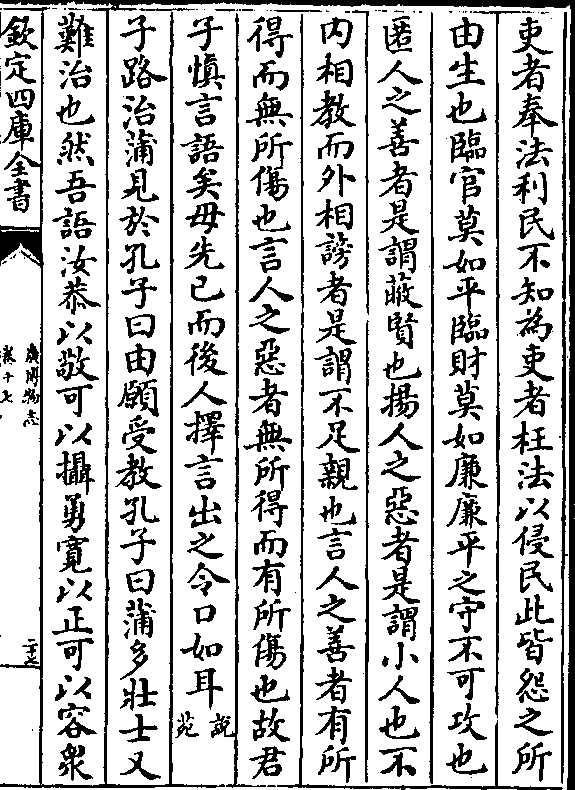 吏者奉法利民不知為吏者枉法以侵民此皆怨之所
由生也臨官莫如平臨財莫如廉廉平之守不可攻也
匿人之善者是謂蔽賢也揚人之惡者是謂小人也不
内相教而外相謗者是謂不足親也言人之善者有所
得而無所傷也言人之惡者無所得而有所傷也故君
子慎言語矣毋先己而後人擇言出之令口如耳說苑
子路治蒲見於孔子曰由願受教孔子曰蒲多壯士又
難治也然吾語汝恭以敬可以攝勇寛以正可以容衆
欽定四庫全書
廣博物志
卷十七